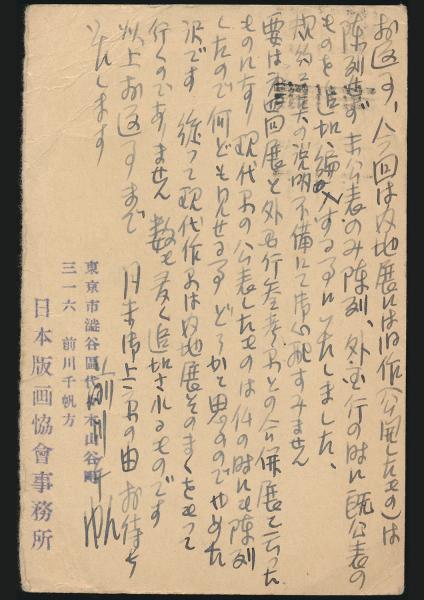 お返事、今回は内地展には旧作(公開したもの)は
陳列せず未公表のみ陳列、外国行の時に既公表の
ものを追加編入する事にいたしました、
規約の説明不備にて御心配すみません
要は内地展と外国行参考品との合併展と云った
ものになり現代品の公表したものは何の時にも陳列
したので何ども見せる事どうかと思ふのでやめた
訳です 従って現代作品は内地展そのまゝをもって
行くのでありません 数も多く追加されるものです
以上お返事まで 月末御上京の由 お待ち
いたします
東京市澁谷區代々木山谷町
三一六 前川千帆方
日本版画協會事務所